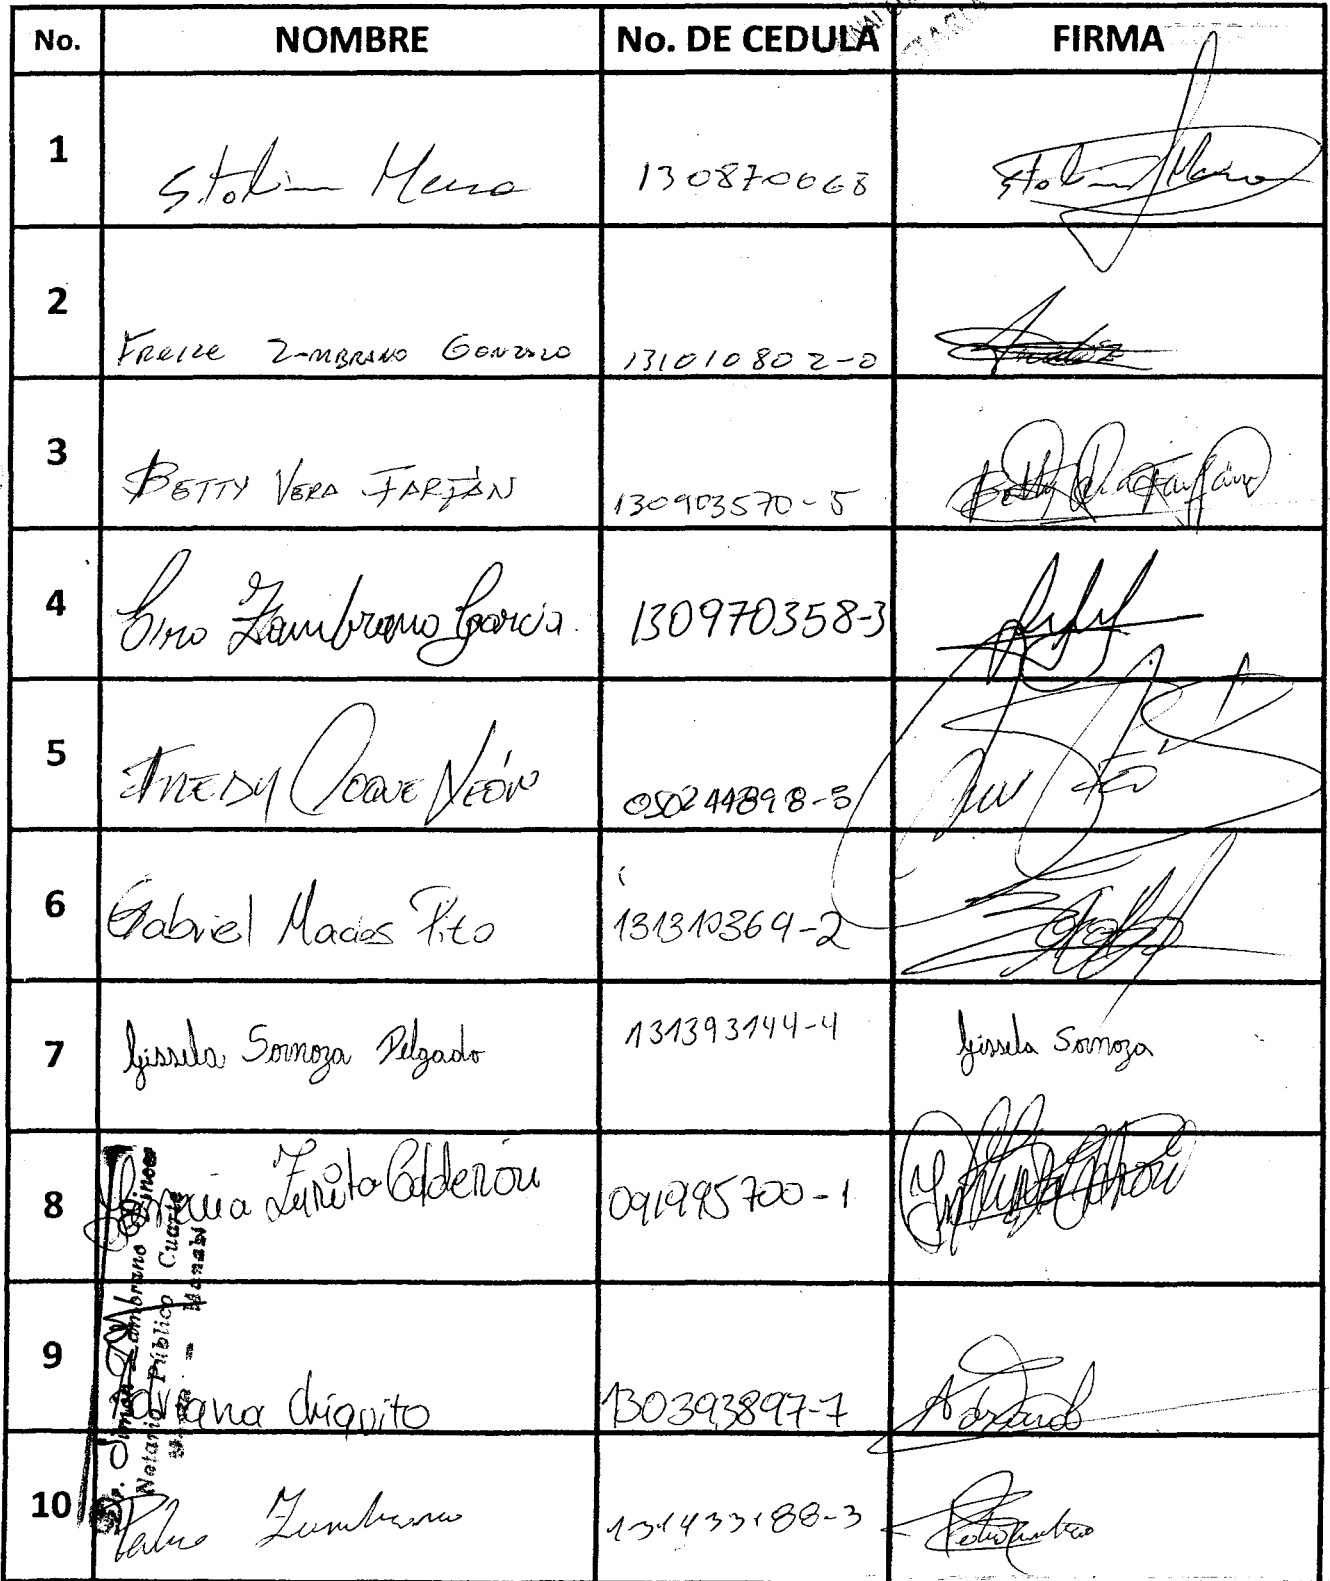 No. NOMBRE No. DE CEDULA FIRMA
1 Stolin Mera 130870068 Stolin Mera
2 Freire Zambrano Gonzalo 131010802-0
3 BETTY VERA FARFÁN 130903570-5 Betty Vera Farfán
4 Ciro Zambrano Garcia. 130970358-3
5 FREDY COQUE LEÓN 050244898-5
6 Gabriel Macias Pito 131310369-2
7 Gissela Sornoza Delgado 131393144-4 Gissela Sornoza
8 Zurita Calderón 091995700-1
9 Adriana Chiquito 130393897-7 Adriana
10 Pedro Zambrano 131433188-3
Dr. Simón Zambrano Vinces
Notario Público Cuarto
Manta - Manabí